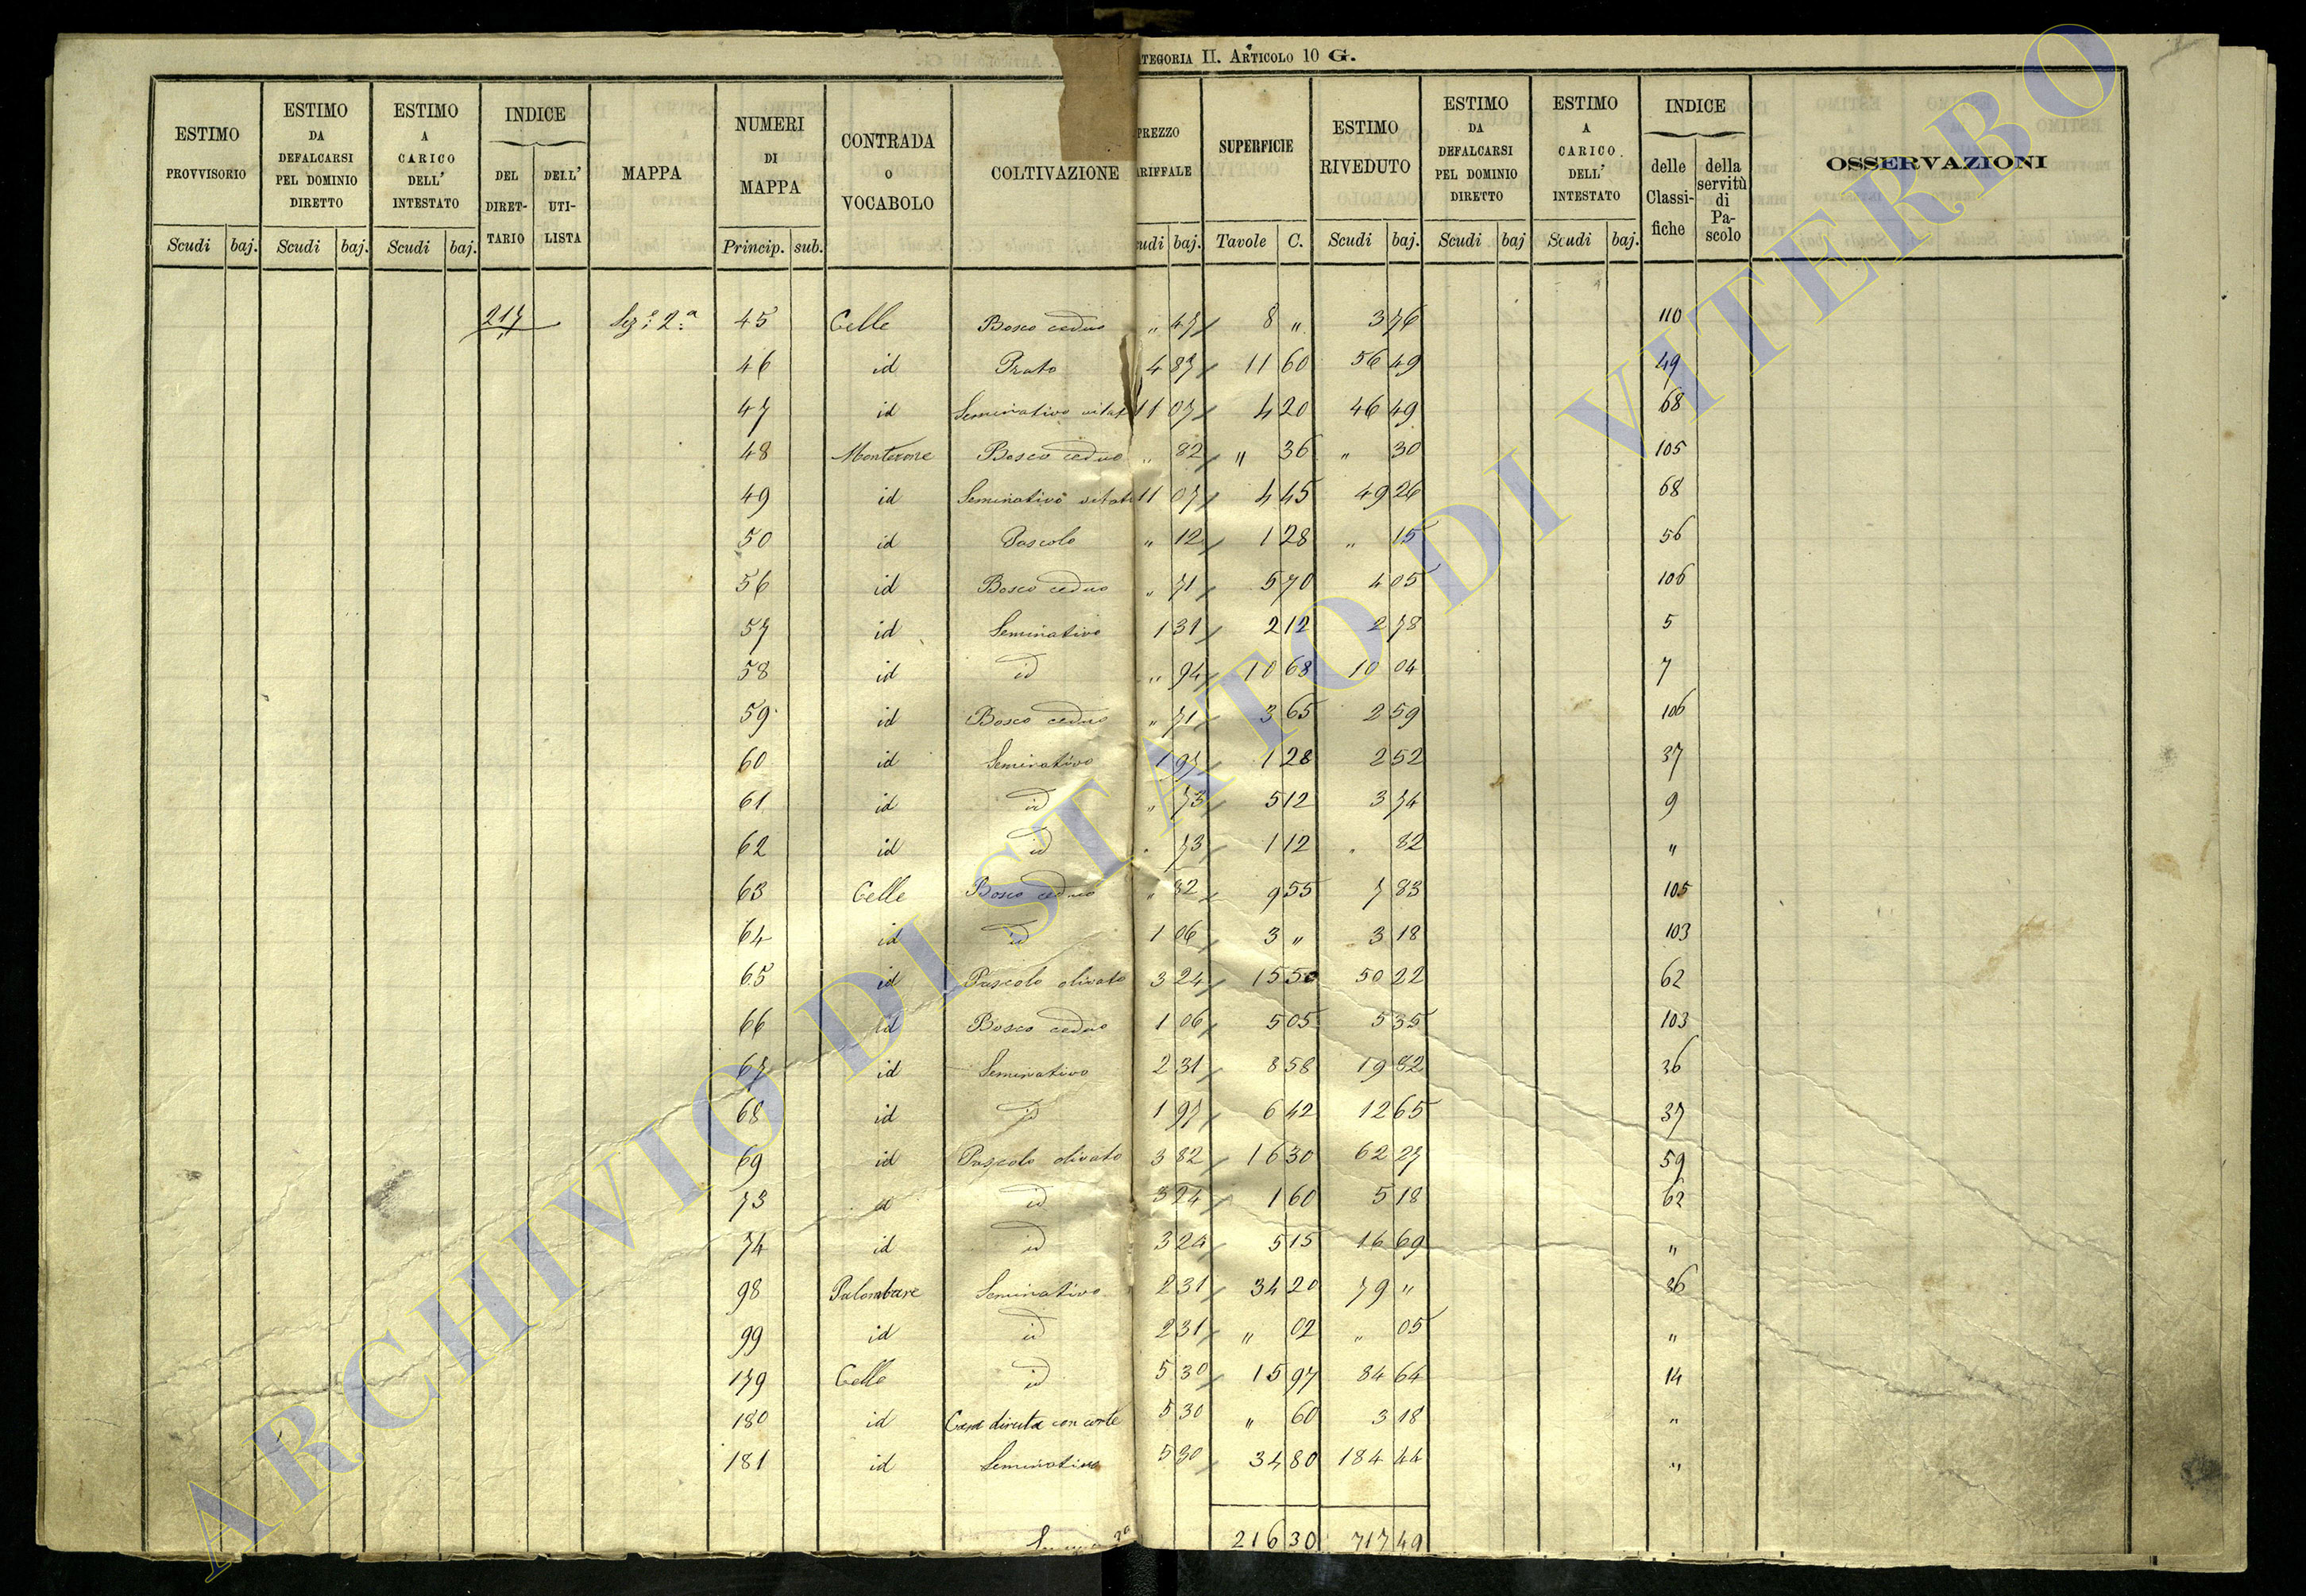 ATEGORIA II. ARTICOLO 10 G.
ESTIMO PROVVISORIO
ESTIMO DA DEFALCARSI PEL DOMINIO DIRETTO
ESTIMO A CARICO DELL' INTESTATO
INDICE
DEL DIRET-TARIO
DELL' UTI-LISTA
MAPPA
NUMERI DI MAPPA
CONTRADA O VOCABOLO
COLTIVAZIONE
PREZZO ARIFFALE
SUPERFICIE
ESTIMO RIVEDUTO
ESTIMO DA DEFALCARSI PEL DOMINIO DIRETTO
ESTIMO A CARICO DELL' INTESTATO
INDICE
delle Classi-fiche
della servitù di Pa-scolo
OSSERVAZIONI
Scudi baj. Scudi baj. Scudi baj. Princip. sub. udi baj. Tavole C. Scudi baj. Scudi baj Scudi baj.
217 Sez.e 2.a 45 Celle Bosco ceduo " 47 8 " 3 76 110
46 id Prato 4 87 11 60 56 49 49
47 id Seminativo vitat 11 07 4 20 46 49 68
48 Monterone Bosco ceduo " 82 " 36 " 30 105
49 id Seminativo vitat 11 07 4 45 49 26 68
50 id Pascolo " 12 1 28 " 15 56
56 id Bosco ceduo " 71 5 70 4 05 106
57 id Seminativo 1 31 2 12 2 78 5
58 id id " 94 10 68 10 04 7
59 id Bosco ceduo " 71 3 65 2 59 106
60 id Seminativo 1 97 1 28 2 52 37
61 id id " 73 5 12 3 74 9
62 id id " 73 1 12 " 82 "
63 Celle Bosco ceduo " 82 9 55 7 83 105
64 id id 1 06 3 " 3 18 103
65 id Pascolo olivato 3 24 15 50 50 22 62
66 id Bosco ceduo 1 06 5 05 5 35 103
67 id Seminativo 2 31 8 58 19 82 36
68 id id 1 97 6 42 12 65 37
69 id Pascolo olivato 3 82 16 30 62 27 59
73 id id 3 24 1 60 5 18 62
74 id id 3 24 5 15 16 69 "
98 Palombare Seminativo 2 31 34 20 79 " 36
99 id id 2 31 " 02 " 05 "
179 Celle id 5 30 15 97 84 64 14
180 id Casa diruta con corte 5 30 " 60 3 18 "
181 id Seminativo 5 30 34 80 184 44 "
216 30 717 49
ARCHIVIO DI STATO DI VITERBO